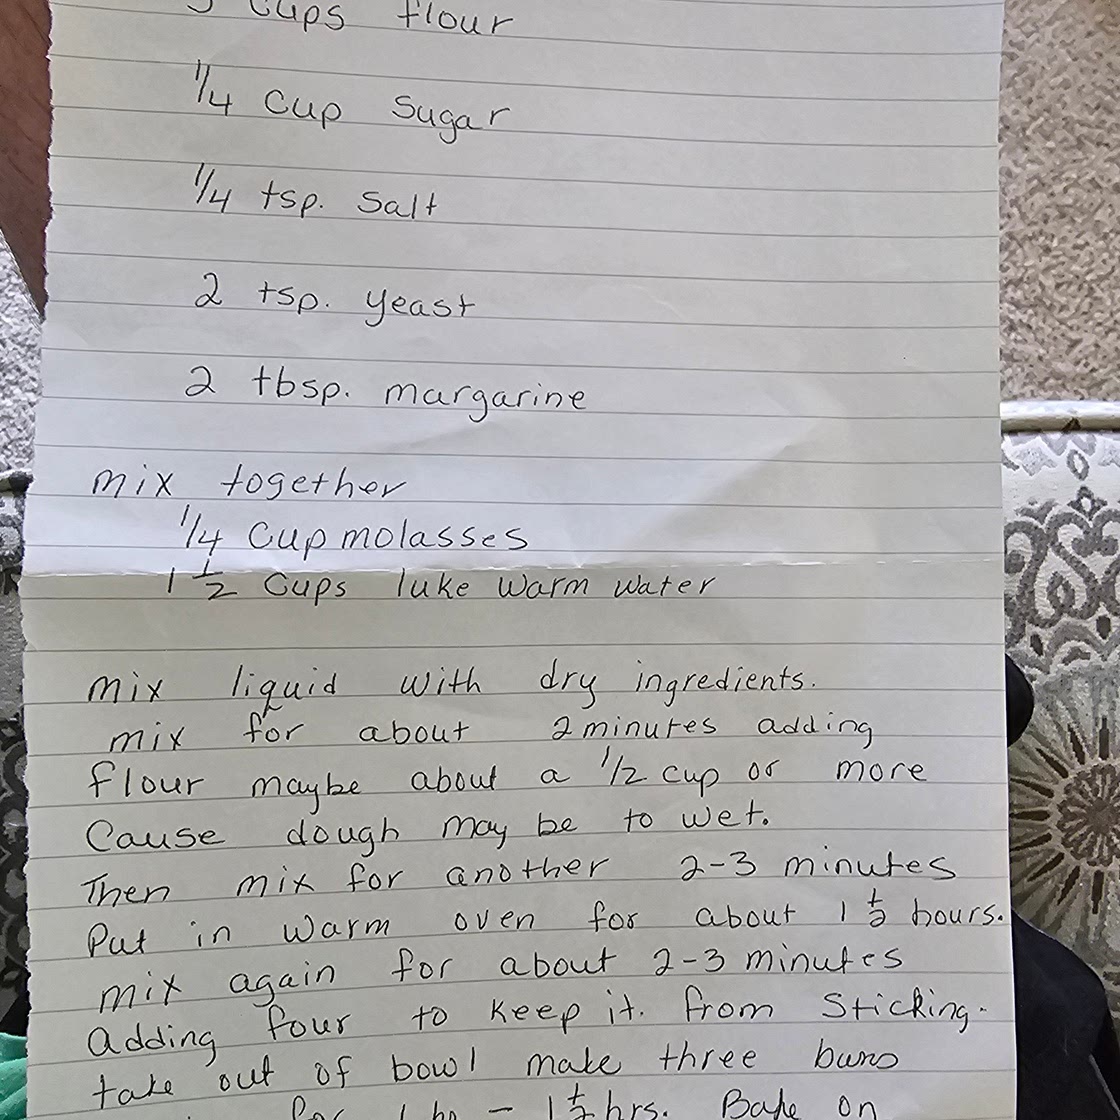 Cups flour
1/4 cup sugar
1/4 tsp. salt
2 tsp. yeast
2 tbsp. margarine
mix together
1/4 cup molasses
1 1/2 cups luke warm water
mix liquid with dry ingredients.
mix for about 2 minutes adding
flour maybe about a 1/2 cup or more
Cause dough may be to wet.
Then mix for another 2-3 minutes
Put in warm oven for about 1 1/2 hours.
mix again for about 2-3 minutes
Adding four to keep it. from sticking.
take out of bowl make three buns
for 1 hr - 1 1/2 hrs. Bake on